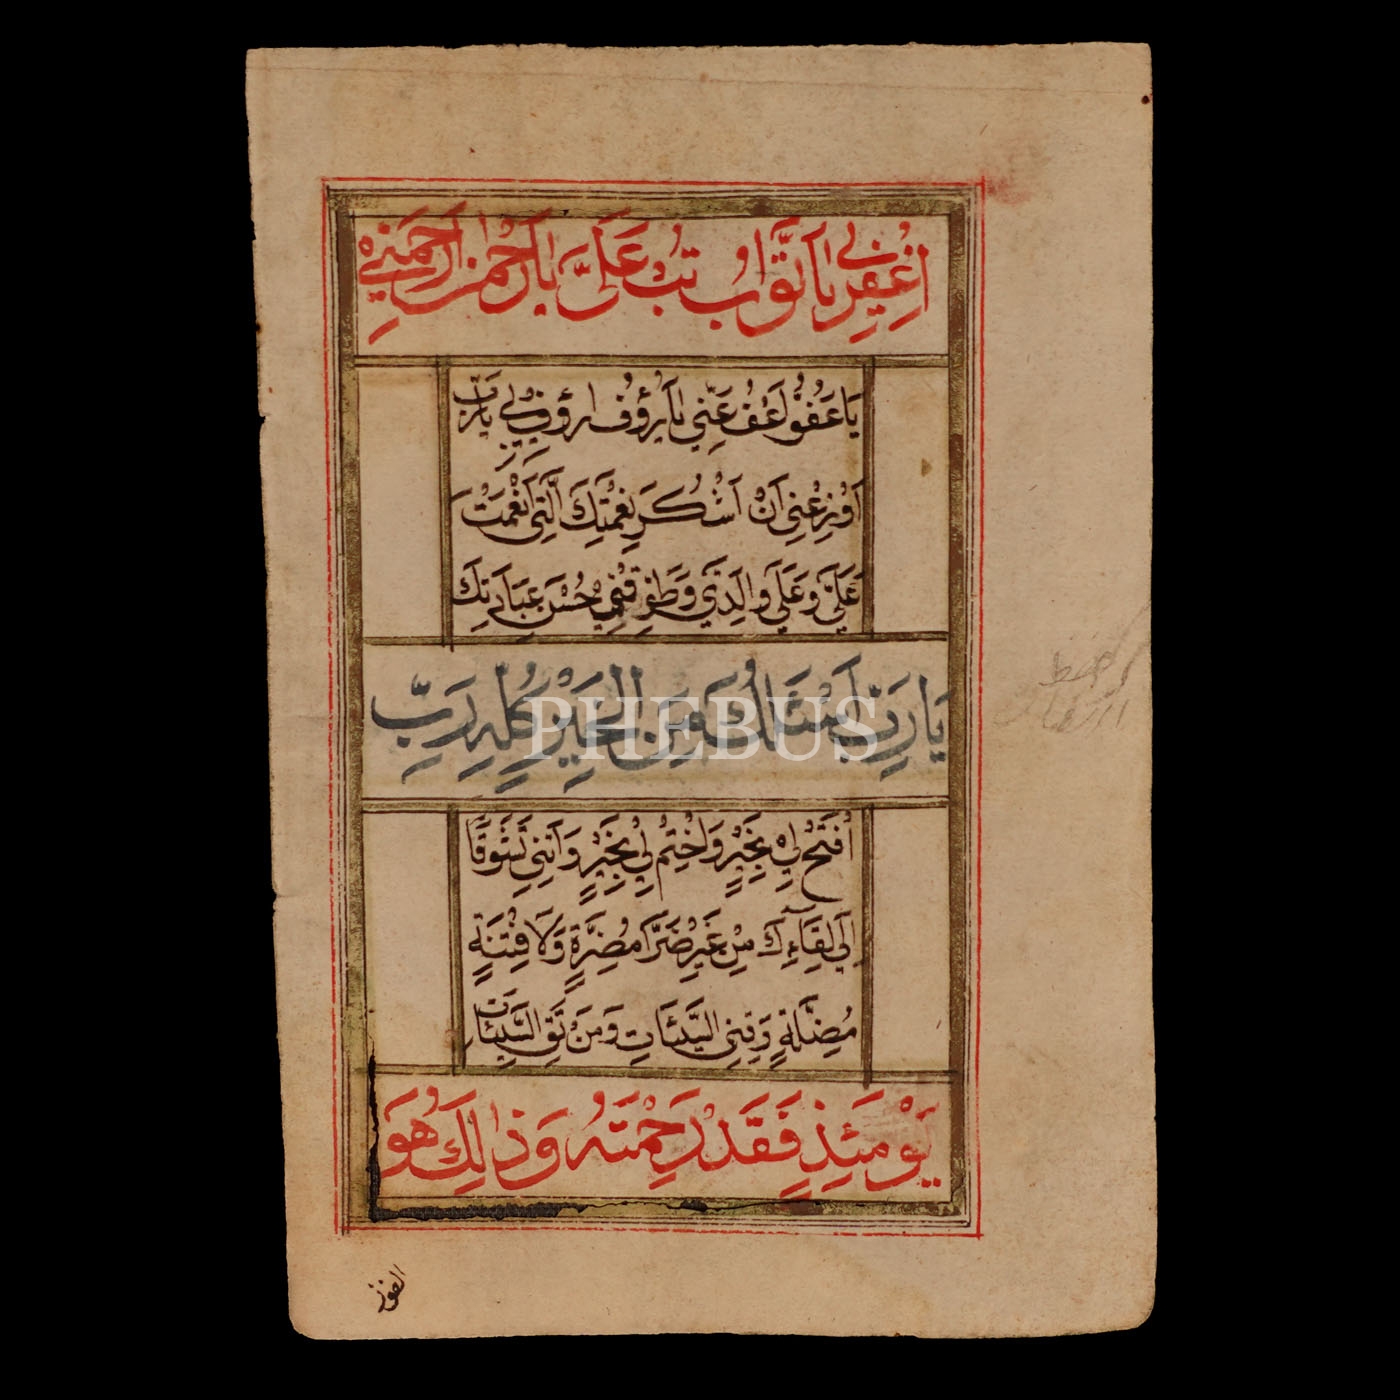 اغْفِرْ لِي يَا تَوَّابُ تُبْ عَلَىَّ يَا رَحْمٰنُ ارْحَمْنِي
يَا عَفُوُّ اَعْفُ عَنِّي يَا رَؤُفُ ارْؤُفْ بِي يَا رَبِّ
اَوْزِعْنِي اَنْ اَشْكُرَ نِعْمَتَكَ الَّتِي اَنْعَمْتَ
عَلَيَّ وَعَلَى وَالِدَيَّ وَطَوِّقْنِي حُسْنَ عِبَادَتِكَ
يَا رَبِّ اَسْئَلُكَ مِنَ الْخَيْرِ كُلِّهِ رَبِّ
PHEBUS
افْتَحْ لِي بِخَيْرٍ وَاخْتِمْ لِي بِخَيْرٍ وَاٰتِنِي تَشَوُّقًا
اِلَى لِقَاءِكَ مِنْ غَيْرِ ضَرَّاءَ مُضِرَّةٍ وَلَا فِتْنَةٍ
مُضِلَّةٍ وَقِنِي السَّيِّئَاتِ وَمَنْ تَقِ السَّيِّئَاتِ
يَوْمَئِذٍ فَقَدْ رَحِمْتَهُ وَذَالِكَ هُوَ
الفوز